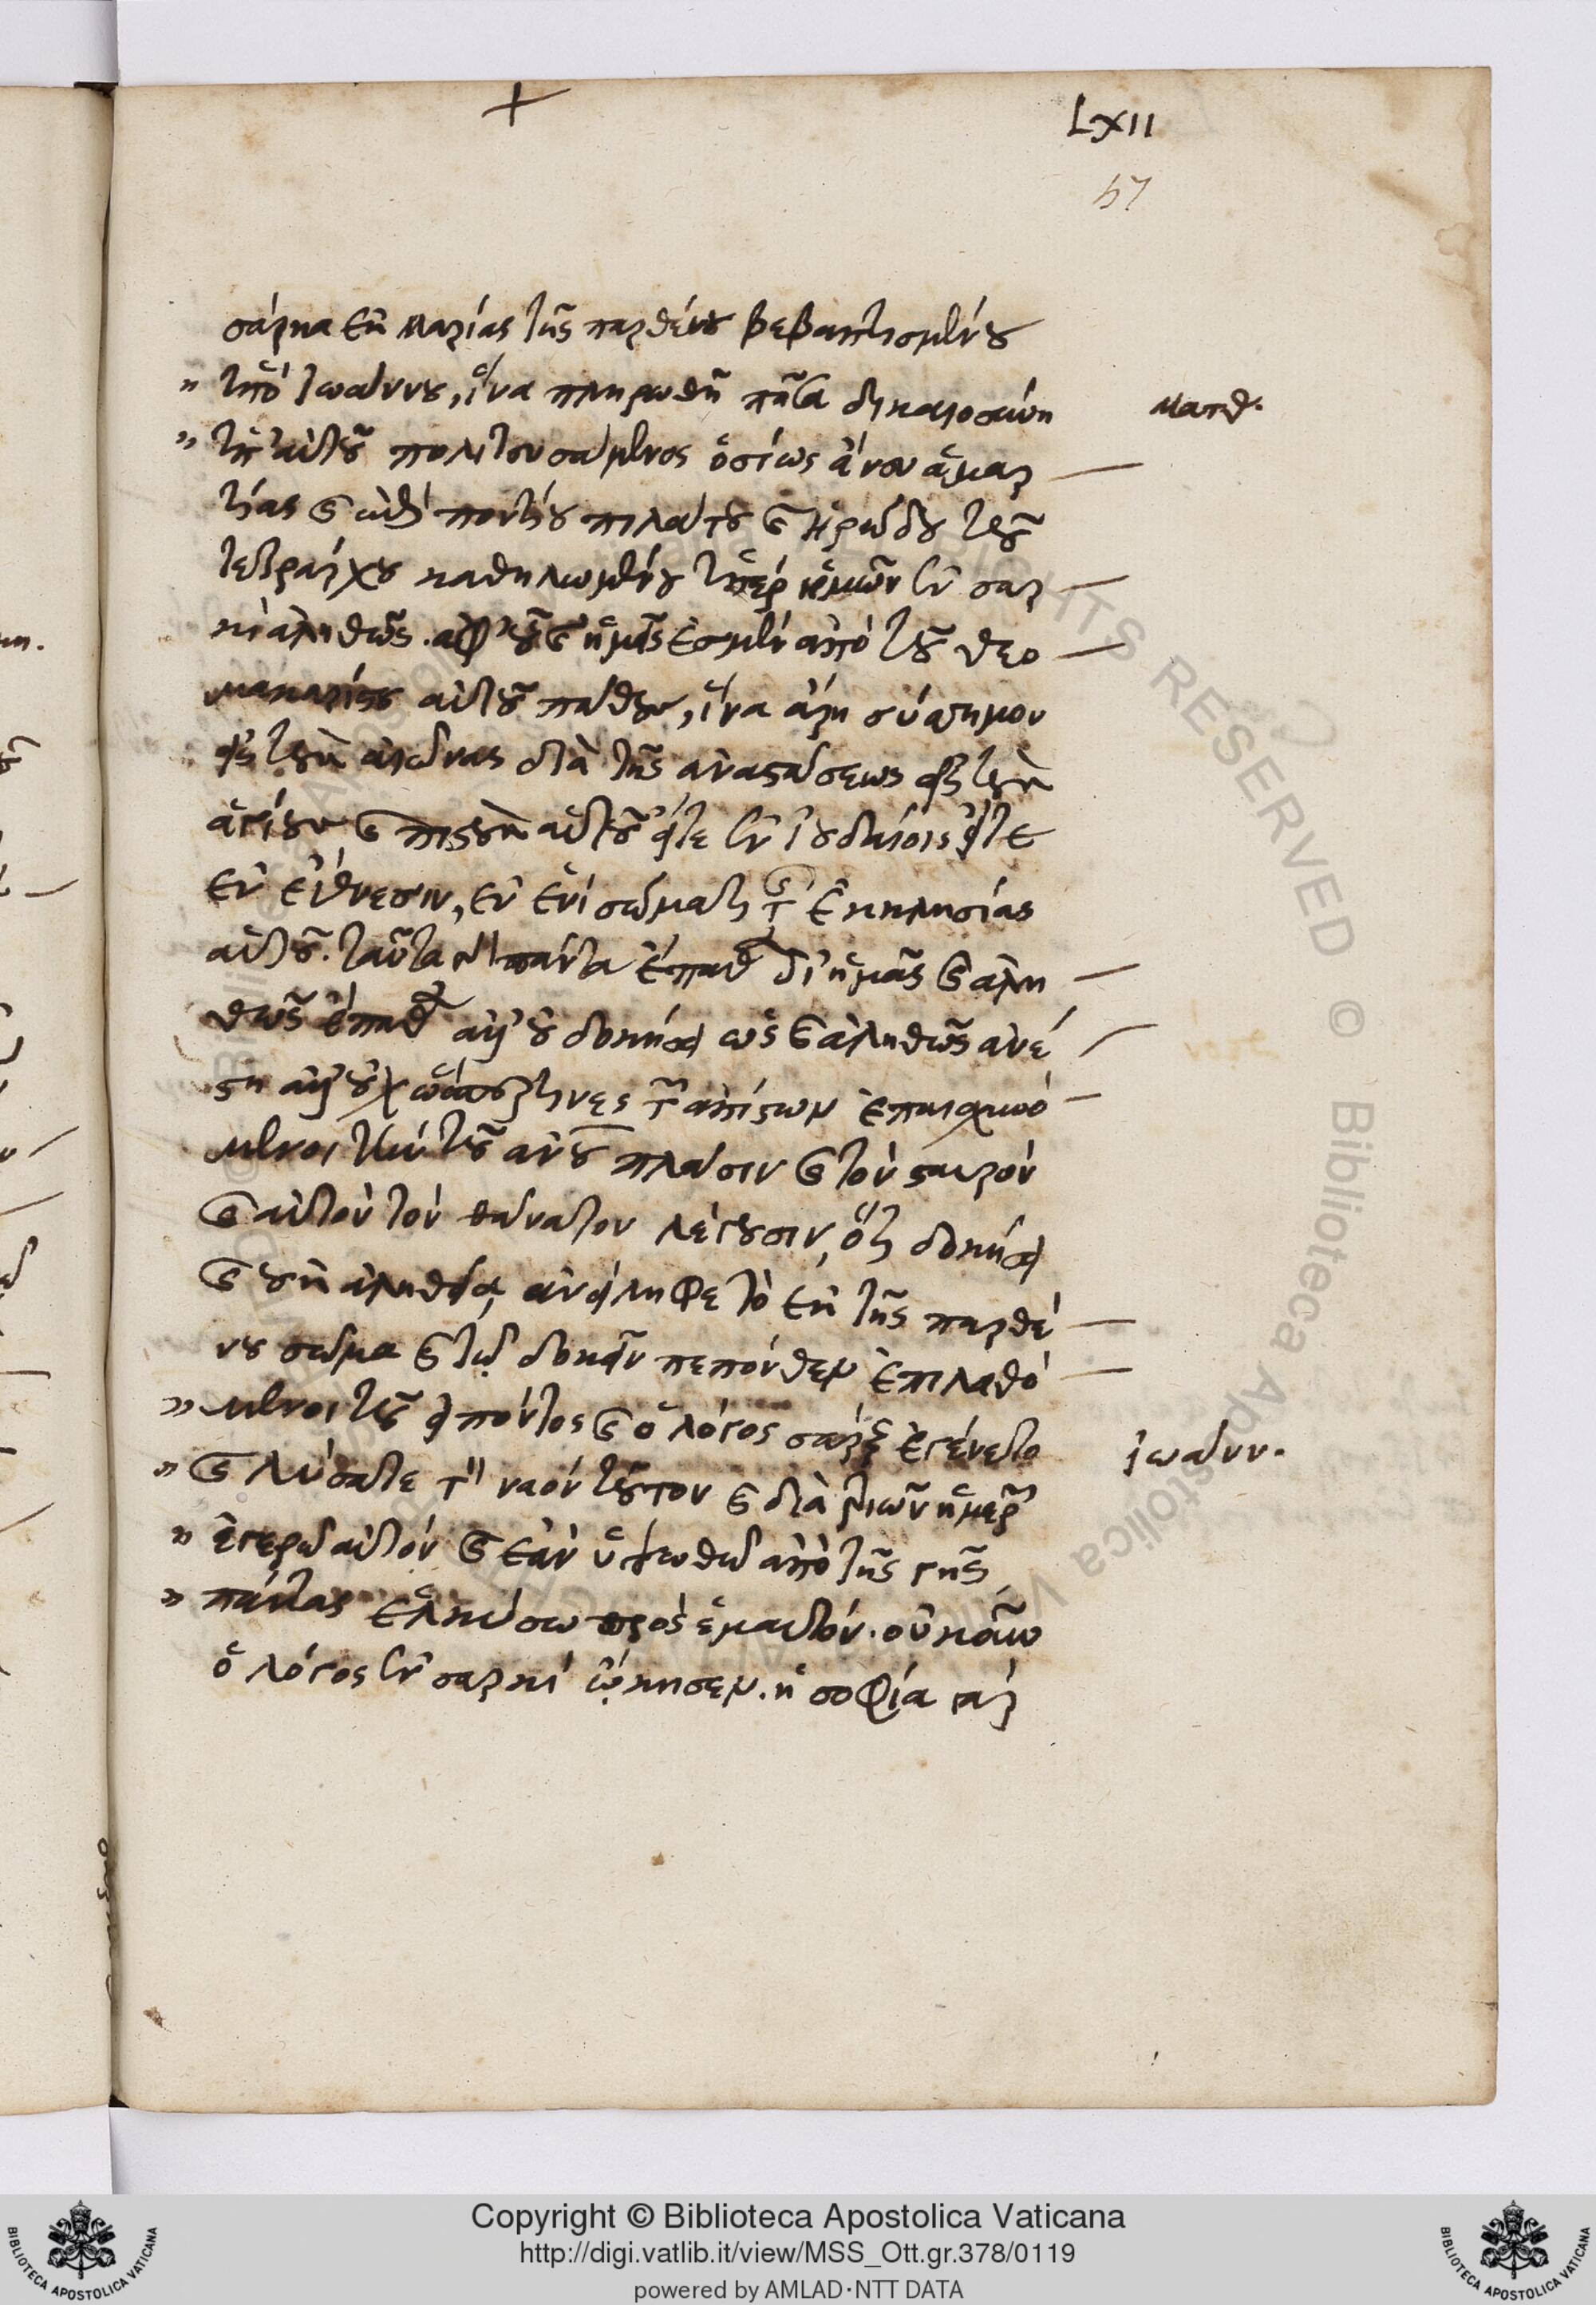 LXII
57
σάρκα ἐκ μαρίας τῆς παρθένου βεβαπτισμένου
" ὑπὸ ἰωάννου, ἵνα πληρωθῆ πᾶσα δικαιοσύνη
ματθ.
" ὑπ' αὐτοῦ πολιτευσάμενος ὁσίως ἄνευ ἁμαρ
τίας καὶ ἐπὶ ποντίου πιλάτου καὶ ἡρώδου τοῦ
τετράρχου καθηλωμένου ὑπὲρ ἡμῶν ἐν σαρ
κὶ ἀληθῶς. ἀφ' οὗ καὶ ἡμεῖς ἐσμὲν ἀπὸ τοῦ θεο
μακαρίτου αὐτοῦ πάθους, ἵνα ἄρη σύσσημον
εἰς τοὺς αἰῶνας διὰ τῆς ἀναστάσεως εἰς τοὺς
ἁγίους καὶ πιστοὺς αὐτοῦ εἴτε ἐν ἰουδαίοις εἴτε
ἐν ἔθνεσιν, ἐν ἑνὶ σώματι τῆς ἐκκλησίας
αὐτοῦ. ταῦτα δὲ πάντα ἔπαθε δι' ἡμᾶς καὶ ἀλη
θῶς ἔπαθε καὶ οὐ δοκήσει ὡς καὶ ἀληθῶς ἀνέ
στη ἀλλ' οὐχ ὥσπερ τινὲς τῶν ἀπίστων ἐπαισχυνό
μενοι τὴν τοῦ ἀνου πλάσιν καὶ τὸν σταυρὸν
καὶ αὐτὸν τὸν θάνατον λέγουσιν, ὅτι δοκήσει
καὶ οὐκ ἀληθείᾳ ἀνείληφε τὸ ἐκ τῆς παρθέ
νου σῶμα καὶ τῷ δοκεῖν πέπονθεν ἐπιλαθό
" μενοι τοῦ εἰπόντος καὶ ὁ λόγος σὰρξ ἐγένετο
ἰωάνν.
" καὶ λύσατε τὸν ναὸν τοῦτον καὶ διὰ τριῶν ἡμερῶν
" ἐγερῶ αὐτὸν καὶ ἐὰν ὑψωθῶ ἀπὸ τῆς γῆς
" πάντας ἑλκύσω πρὸς ἐμαυτόν. οὐκοῦν
ὁ λόγος ἐν σαρκὶ ᾤκησεν. ἡ σοφία γὰρ
Copyright © Biblioteca Apostolica Vaticana
http://digi.vatlib.it/view/MSS_Ott.gr.378/0119
powered by AMLAD·NTT DATA